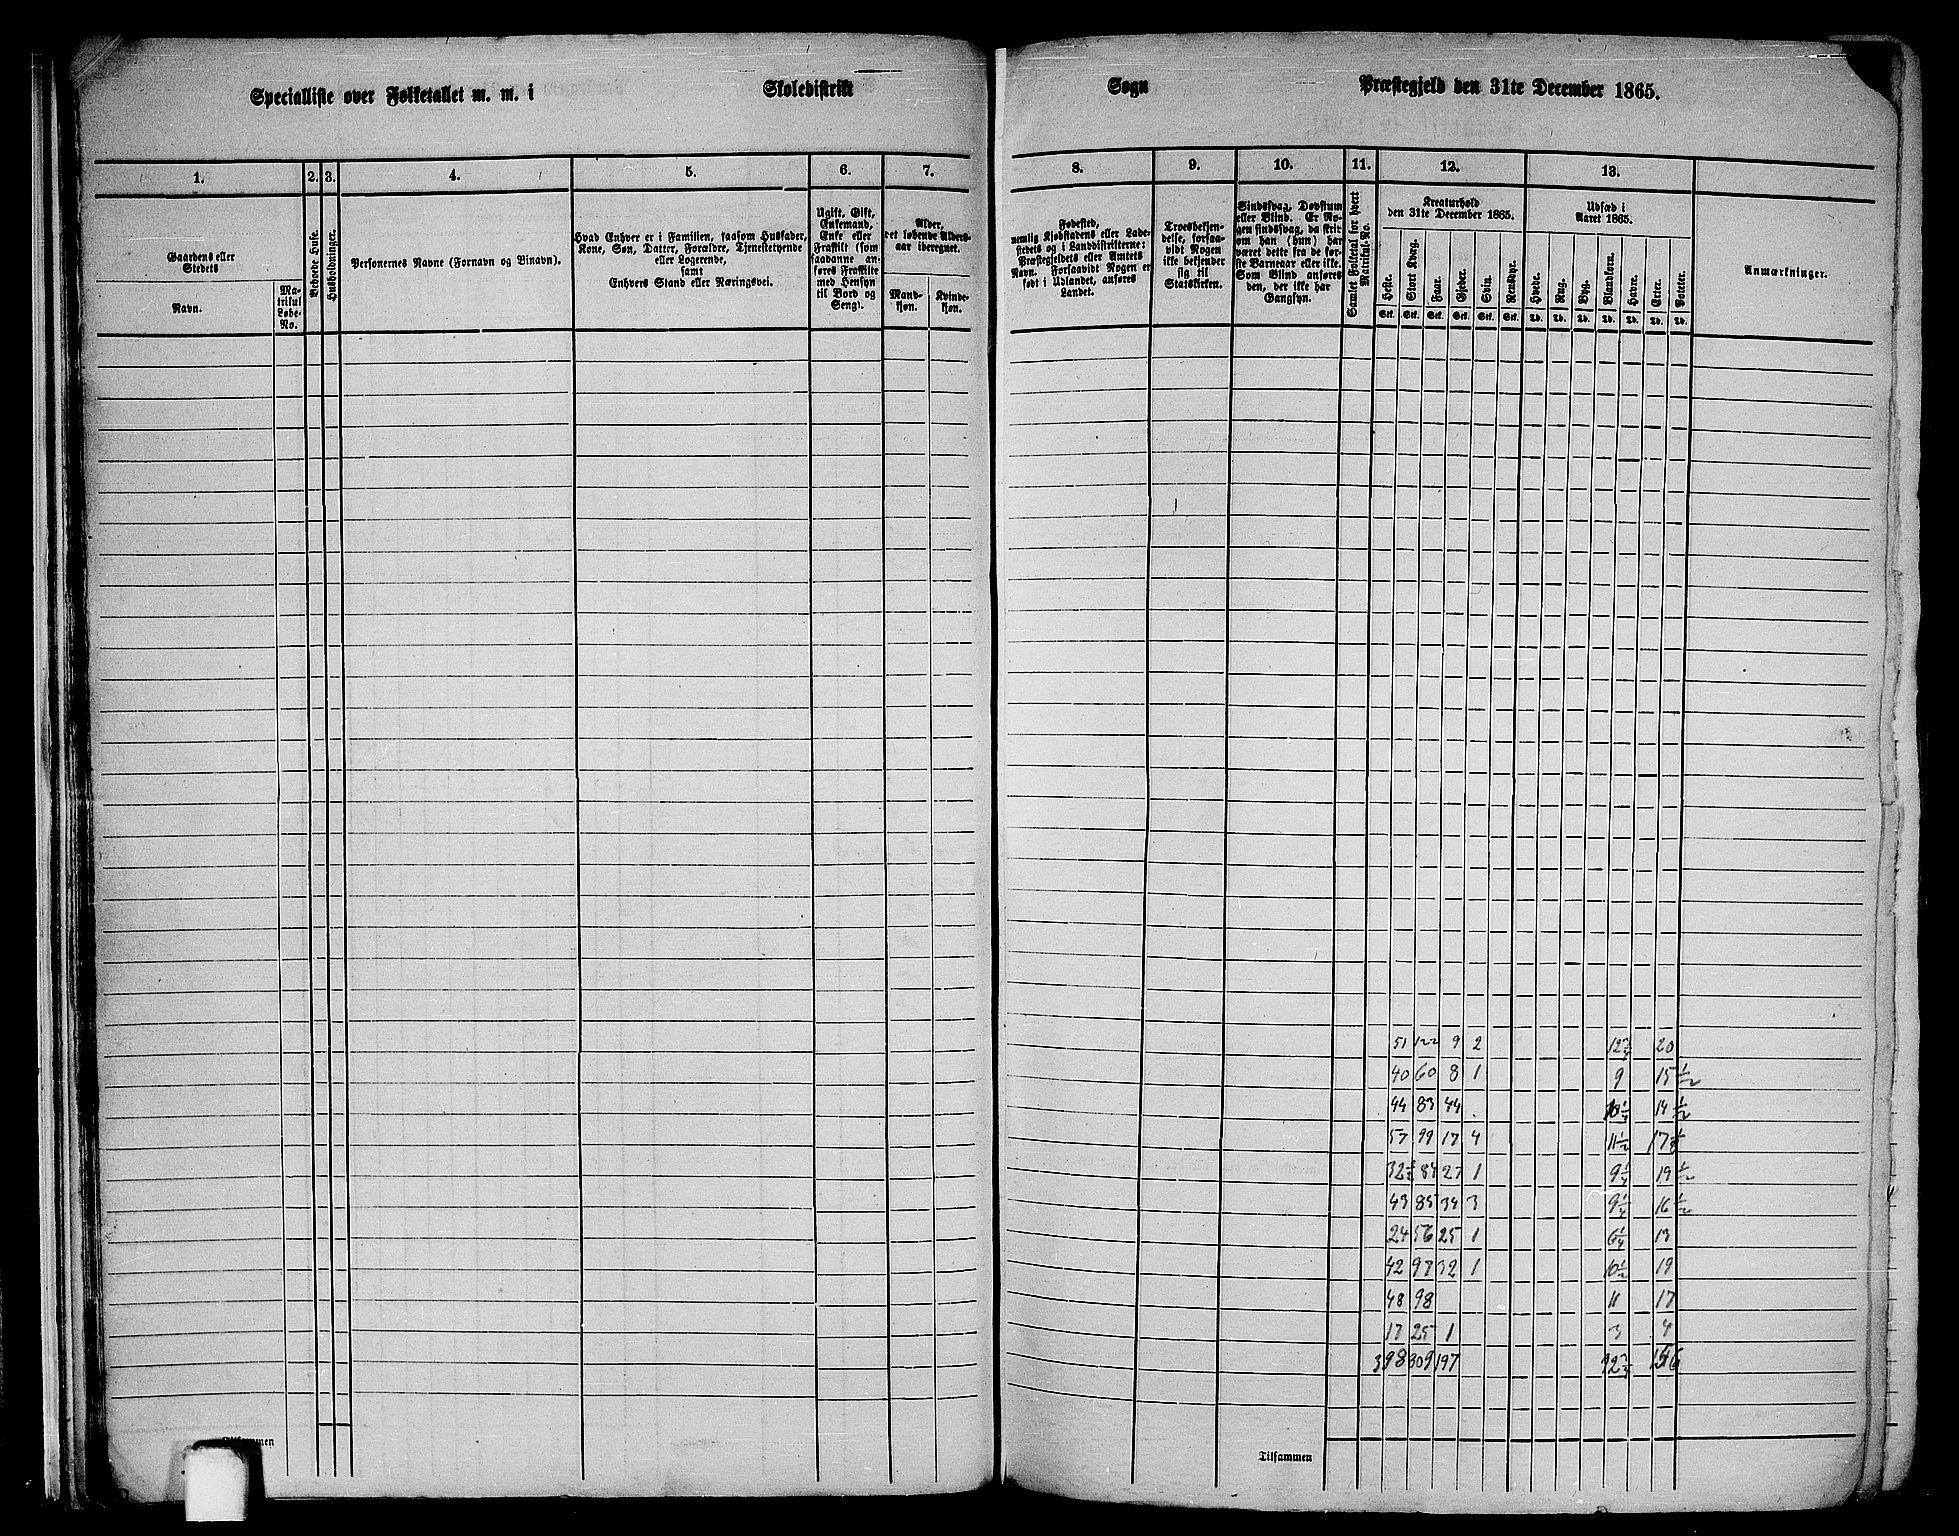 Specialliste over Folketallet m. m. i Skoledistrikt Sogn Præstegjeld den 31te December 1865.
1. 2. 3. 4. 5. 6. 7. 8. 9. 10. 11. 12. 13.
Gaardens eller
Stedets
Navn.
Ma-
trikul
Løbe-
No.
Beboede Huse.
Husholdninger.
Personernes Navne (Fornavn og Binavn).
Hvad Enhver er i Familien, saasom Husfader,
Kone, Søn, Datter, Forældre, Tjenestetyende
eller Logerende,
samt
Enhvers Stand eller Næringsvei.
Ugift, Gift,
Enkemand,
Enke eller
Fraskilt (som
saadanne an-
føres Fraskilte
med Hensyn
til Bord og
Seng).
Alder,
det løbende Alders-
aar iberegnet.
Mand-
kjøn.
Kvinde-
kjøn.
Fødested,
nemlig Kjøbstadens eller Lade-
stedets og i Landdistrikterne:
Præstegjeldets eller Amtets
Navn. Forsaavidt Nogen er
født i Udlandet, anføres
Landet.
Troesbekjen-
delse, forsaa-
vidt Nogen
ikke bekjender
sig til
Statskirken.
Sindssvag, Døvstum
eller Blind. Er No-
gen sindssvag, da skriv
om han (hun) har
været dette fra de før-
ste Barneaar eller ikke.
Som Blind anføres
den, der ikke har
Gangsyn.
Samlet Folketal for hvert
Matrikul-No.
Kreaturhold
den 31te December 1865.
Heste.
Stort Kvæg.
Faar.
Gjeder.
Svin.
Rensdyr.
Stk. Stk. Stk. Stk. Stk. Stk.
Udsæd i
Aaret 1865.
Hvede.
Rug.
Byg.
Blandkorn.
Havre.
Erter.
Poteter.
Td. Td. Td. Td. Td. Td. Td.
Anmærkninger.
51 122 9 2 20
40 60 8 1 9 15 1/2
44 83 44 10 1/4 14 1/2
57 99 17 4 11 1/2 17
84 27 1 9 1/4 19 1/2
43 85 34 3 9 1/4 16 1/2
24 56 25 1 6 1/4 13
42 97 32 1 10 1/2 19
48 98 11 17
17 25 1 3 4
398 809 197 156
Tilsammen
Tilsammen